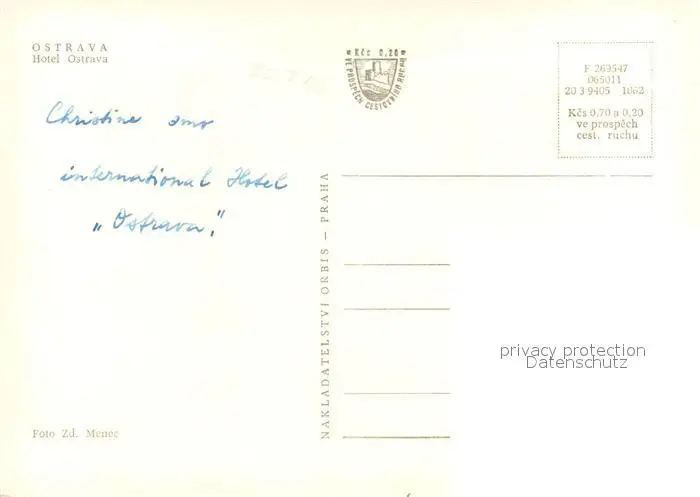 OSTRAVA
Hotel Ostrava
Kčs 0,20
VE PROSPĚCH CESTOVNÍHO RUCHU
F 269547
065011
20 3 9405 1062
Kčs 0,70 a 0,20
ve prospěch
cest. ruchu
Christine
international Hotel
„Ostrava."
NAKLADATELSTVÍ ORBIS – PRAHA
privacy protection
Datenschutz
Foto Zd. Menec